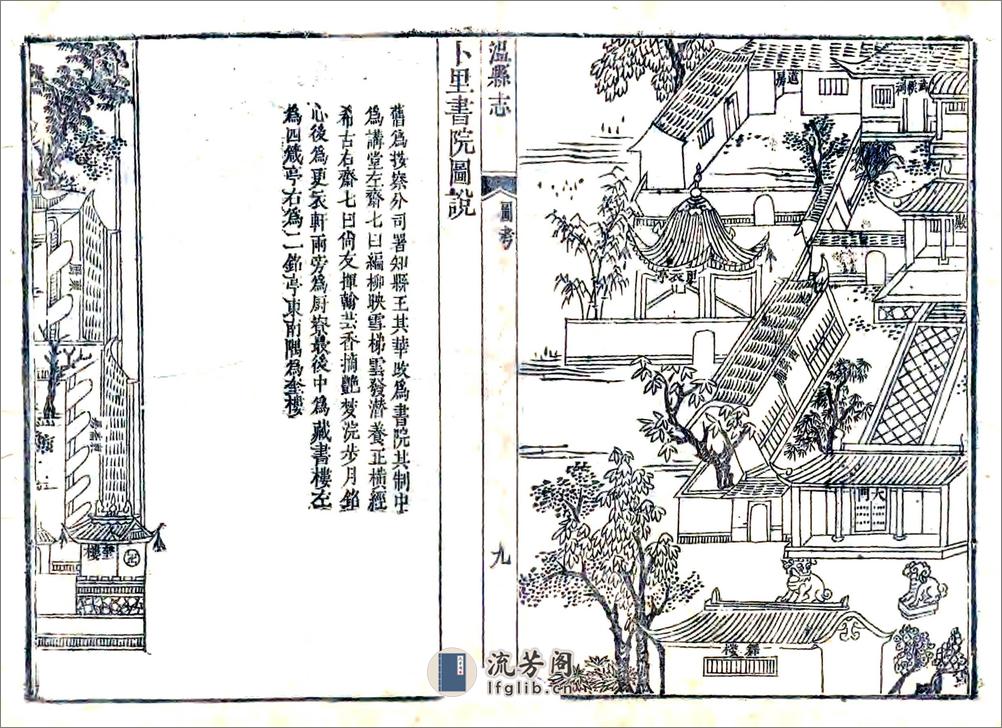 溫縣志
圖考
九
卜里書院圖說
舊為按察分司署知縣王其華改為書院其制中
為講堂左齋七曰編柳映雪梯雲發潛養正橫經
希古右齋七曰尚友揮翰芸香摘艷梦浣步月銘
心後為更衣軒兩旁為厨寮最後中為藏書樓左
為四箴亭右為二銘亭東南隅為奎樓
更衣亭
大門
奎樓
流芳阁
lfglib.cn